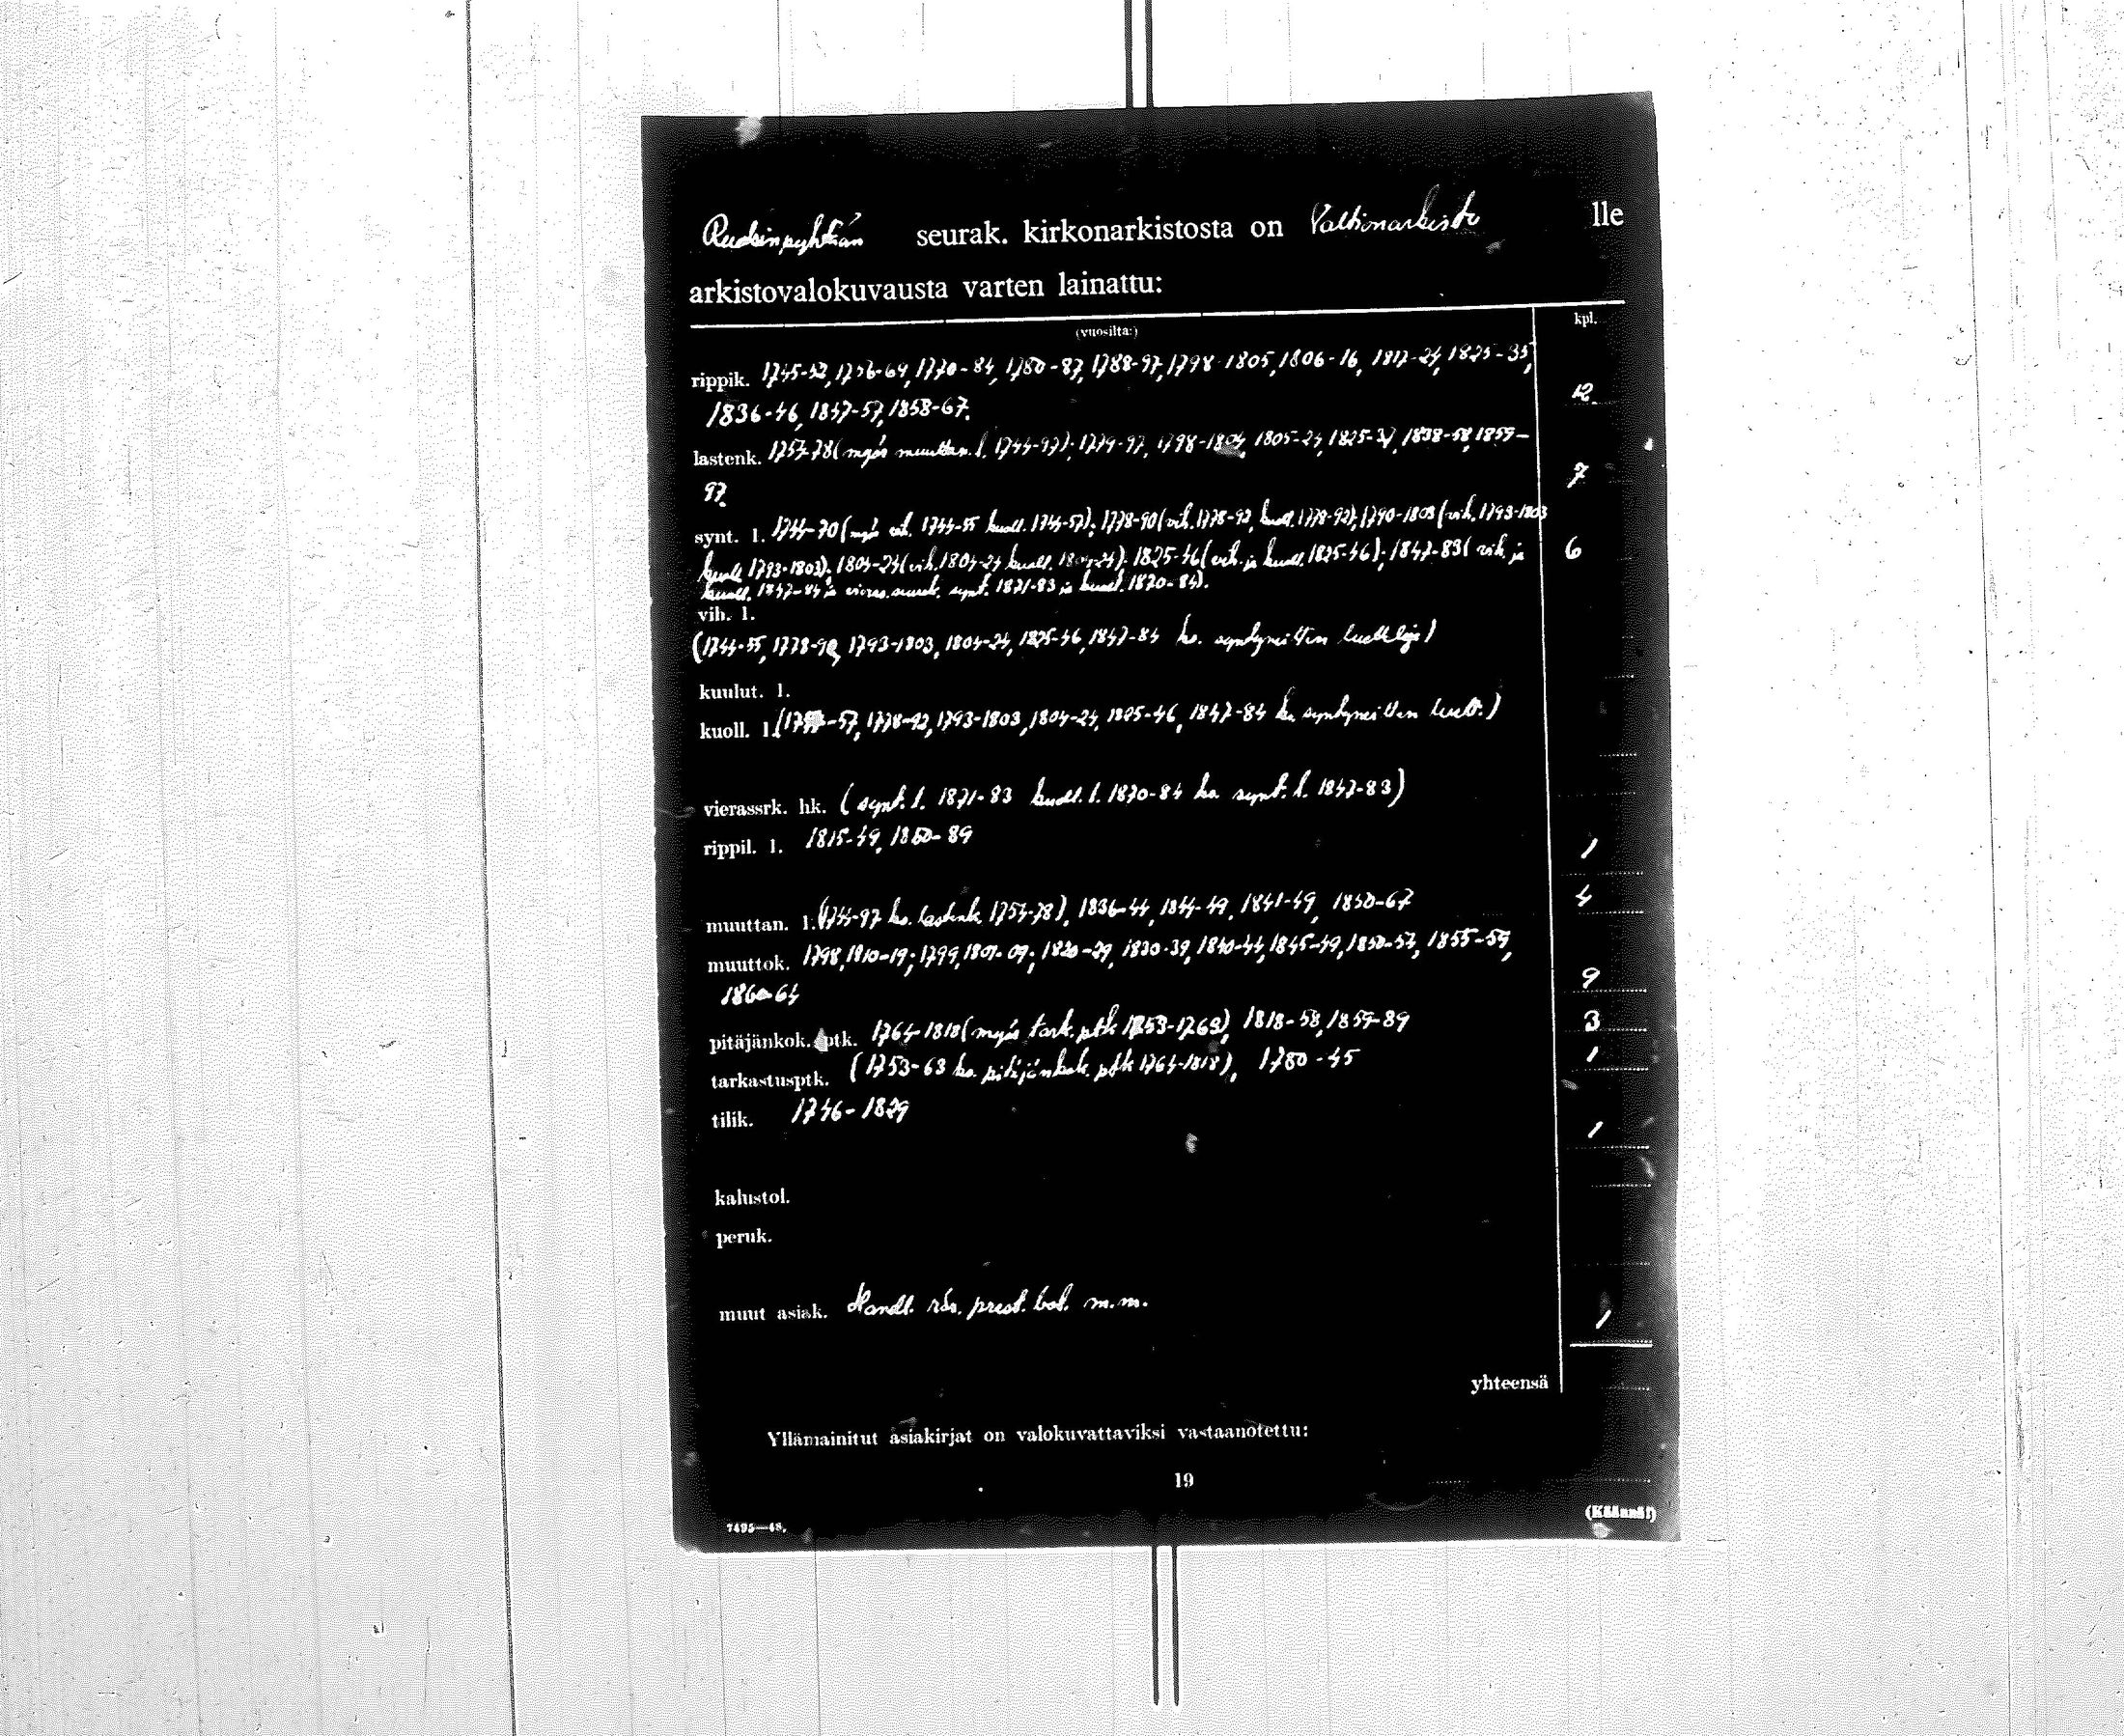 Ruotsinpyhtään seurak. kirkonarkistosta on Valtionarkisto lle
arkistovalokuvausta varten lainattu:
(vuosilta:) kpl.
rippik. 1745-52, 1756-64, 1770-84, 1780-87, 1788-97, 1798-1805, 1806-16, 1817-24, 1825-35,
1836-46, 1847-57, 1858-67. 12
lastenk. 1757-78 (myös muuttan. l. 1744-97); 1779-97, 1798-1804, 1805-24, 1825-37, 1838-58, 1859-
97. 7
synt. l. 1744-70 (myös vih. 1744-55 kuoll. 1744-57); 1778-90 (vih. 1778-92, kuoll. 1778-92); 1790-1803 (vih. 1793-1803
kuoll. 1793-1803); 1804-24 (vih. 1804-24 kuoll. 1804-24); 1825-46 (vih. ja kuoll. 1825-46); 1847-83 (vih. ja 6
kuoll. 1847-84 ja vieras seurak. synt. 1871-83 ja kuoll. 1870-84).
vih. l.
(1744-55, 1778-92, 1793-1803, 1804-24, 1825-46, 1847-84 ks. syntyneitten luetteloja)
kuulut. l.
kuoll. l. (1744-57, 1778-92, 1793-1803, 1804-24, 1825-46, 1847-84 ks. syntyneitten luett.)
vierassrk. hk. (synt. l. 1871-83 kuoll. l. 1870-84 ks. synt. l. 1847-83)
rippil. l. 1815-49, 1850-89 1
muuttan. l. (1744-97 ks. lastenk. 1757-78), 1836-44, 1844-49, 1841-49, 1850-67 4
muuttok. 1798, 1810-19; 1799, 1801-09; 1820-29, 1830-39, 1840-44, 1845-49, 1850-57, 1855-59,
1860-64 9
pitäjänkok. ptk. 1764-1818 (myös tark. ptk 1753-1763), 1818-58, 1859-89 3
tarkastusptk. (1753-63 ks. pitäjänkok. ptk 1764-1818), 1780-45 1
tilik. 1746-1829 1
kalustol.
peruk.
muut asiak. Handl. rör. prest. bol. m.m. 1
yhteensä
Yllämainitut asiakirjat on valokuvattaviksi vastaanotettu:
19
7495—48. (Käännä!)